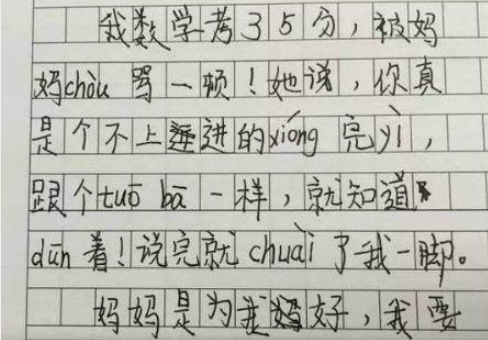 我数学考35分，被妈
妈chòu 骂一顿！她说，你真
是个不上进的xióng 完yì，
跟个tuō bā 一样，就知道
dūn 着！说完就 chuài 了我一脚。
妈妈是为我好，我要